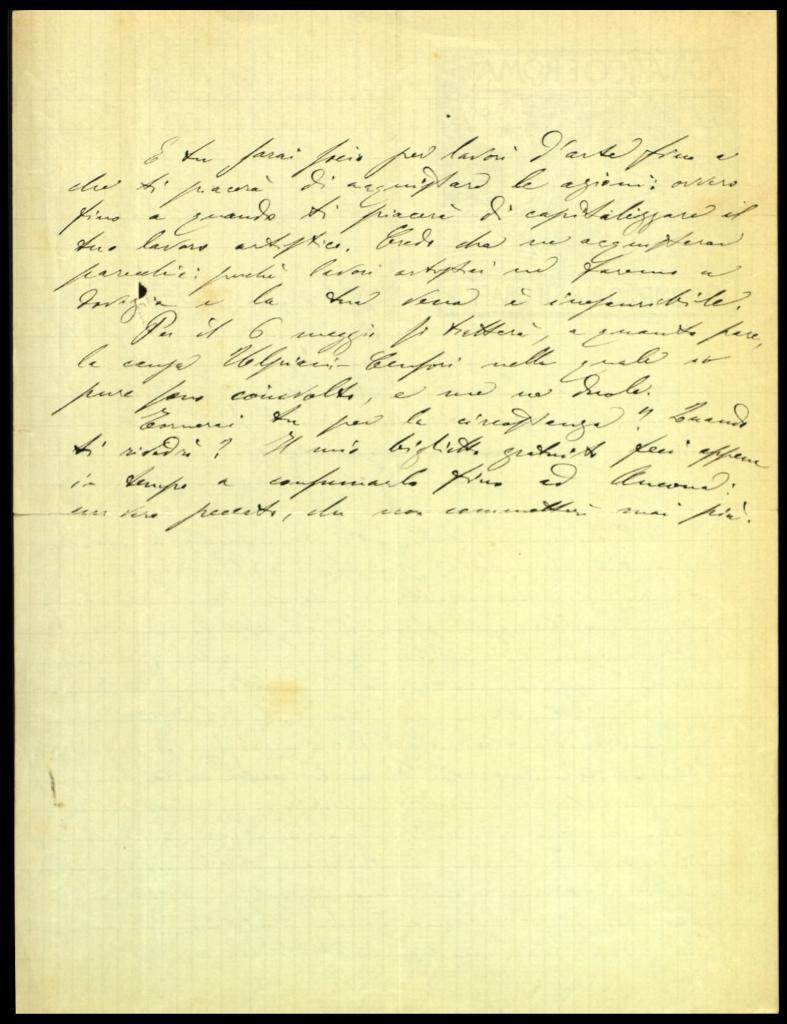 E tu sarai socio per lavori d'arte fino a
che ti piacerà di acquistare le azioni: ovvero
fino a quando ti piacerà di capitalizzare il
tuo lavoro artistico. Credo che ne acquisterai
parecchie: poichè lavori artistici ne faremo a
dovizia e la tua vena è inesauribile.
Per il 6 maggio si tratterà, a quanto pare,
la causa Ulpiani-Censori nella quale io
pure sono coinvolto, e me ne duole.
Tornerai tu per la circostanza? Quando
ti rivedrò? Il mio biglietto gratuito feci appena
in tempo a consumarlo fino ad Ancona:
un vero peccato, che non commetterò mai più.